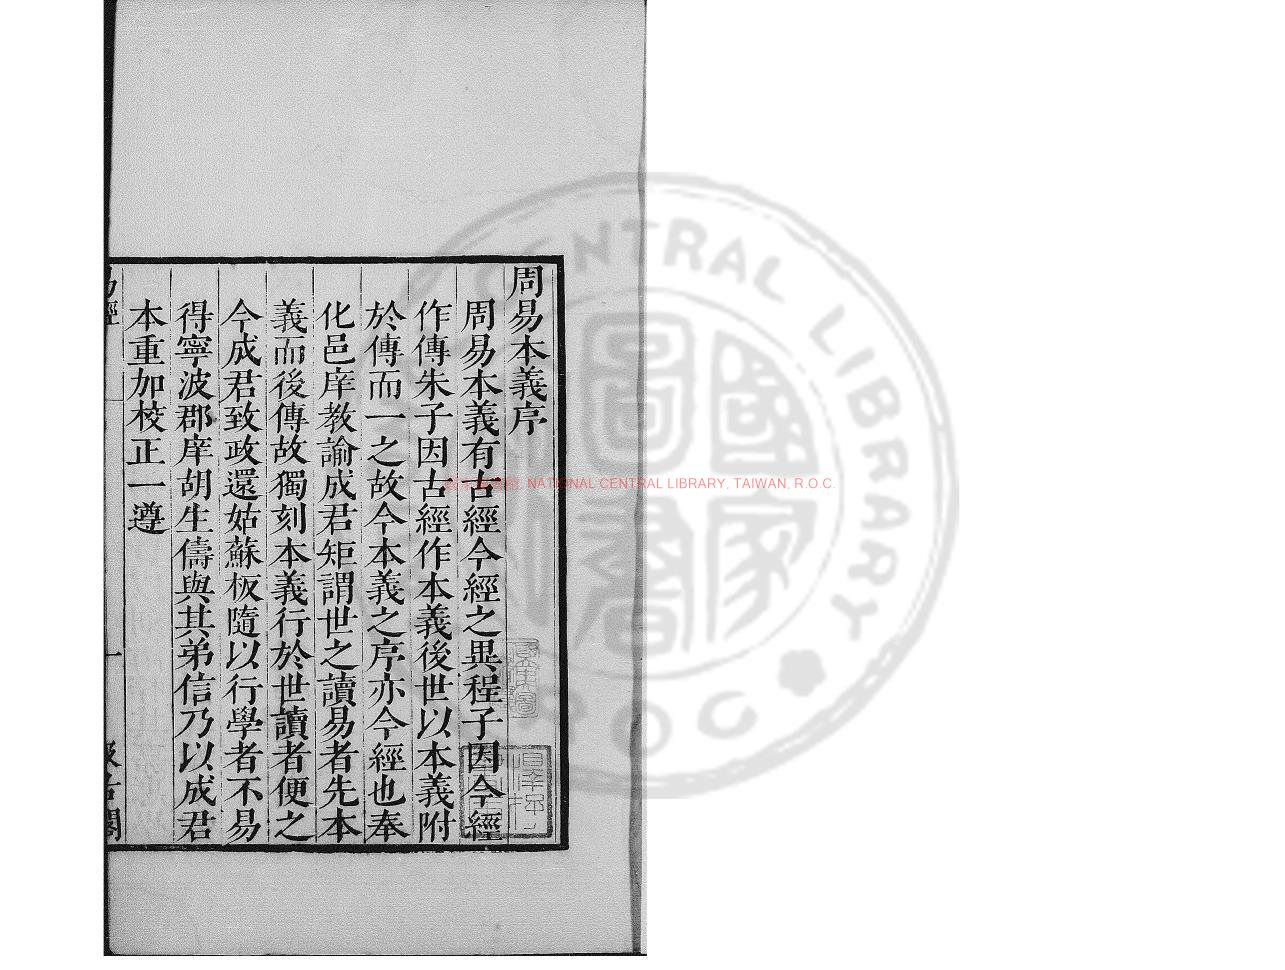 周易本義序
周易本義有古經今經之異程子因今經
作傳朱子因古經作本義後世以本義附
於傳而一之故今本義之序亦今經也奉
化邑庠教諭成君矩謂世之讀易者先本
義而後傳故獨刻本義行於世讀者便之
今成君致政還姑蘇板隨以行學者不易
得寧波郡庠胡生儔與其弟信乃以成君
本重加校正一遵
易經
一
汲古閣
NATIONAL CENTRAL LIBRARY, TAIWAN, R.O.C.
CENTRAL LIBRARY
R O C
國家圖書